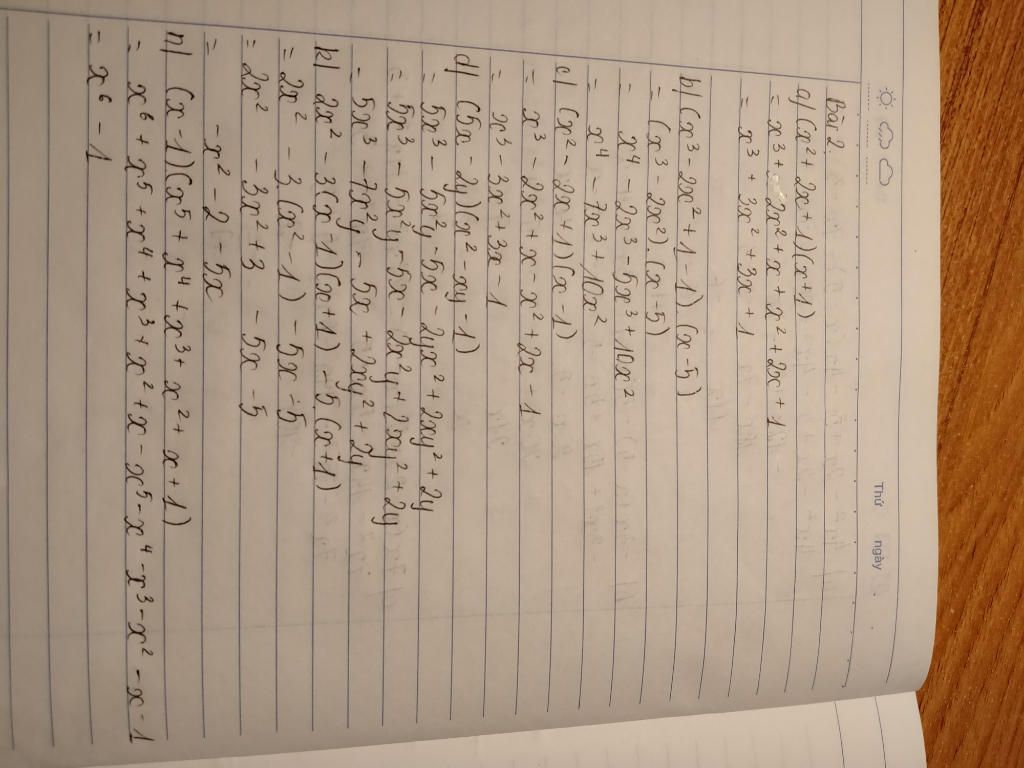 Thứ ngày
Bài 2.
a) (x² + 2x + 1)(x+1)
= x³ + 2x² + x + x² + 2x + 1
= x³ + 3x² + 3x + 1
b) (x³ - 2x² + 1 - 1).(x - 5)
= (x³ - 2x²).(x - 5)
= x⁴ - 2x³ - 5x³ + 10x²
= x⁴ - 7x³ + 10x²
c) (x² - 2x + 1)(x - 1)
= x³ - 2x² + x - x² + 2x - 1
= x³ - 3x² + 3x - 1
d) (5x - 2y)(x² - xy - 1)
= 5x³ - 5x²y - 5x - 2yx² + 2xy² + 2y
= 5x³ - 5x²y - 5x - 2x²y + 2xy² + 2y
= 5x³ - 7x²y - 5x + 2xy² + 2y
k) 2x² - 3(x - 1)(x + 1) - 5(x+1)
= 2x² - 3.(x² - 1) - 5x - 5
= 2x² - 3x² + 3 - 5x - 5
= - x² - 2 - 5x
n) (x - 1)(x⁵ + x⁴ + x³ + x² + x + 1)
= x⁶ + x⁵ + x⁴ + x³ + x² + x - x⁵ - x⁴ - x³ - x² - x - 1
= x⁶ - 1